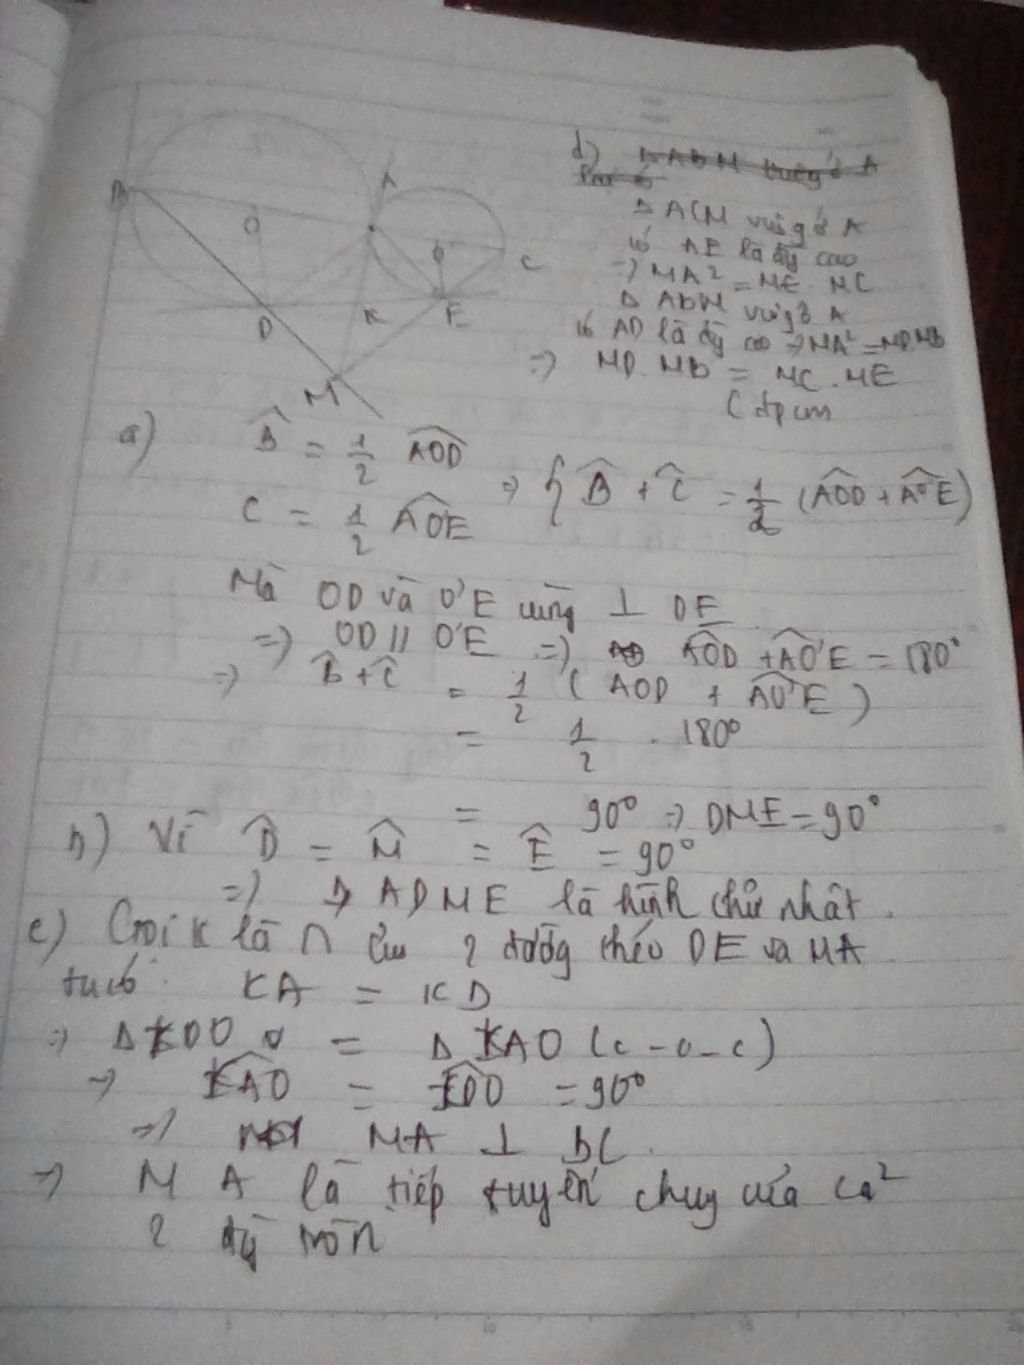 B
O
A
O
C
D
K
E
M
d) ∆ABM vuông ở A
∆ ACM vuông ở A
có AE là đg cao
=> MA² = ME. MC
∆ ABM vuông ở A
có AD là đg cao => MA² = MD MB
=> MD. MB = MC. ME
(đpcm
a) B̂ = 1/2 AOD
C = 1/2 AO'E
=> { B̂ + Ĉ = 1/2 (AOD + AO'E)
Mà OD và O'E cùng ⊥ DE
=> OD // O'E => AOD + AO'E = 180°
=> B̂ + Ĉ = 1/2 ( AOD + AO'E )
= 1/2 . 180°
= 90° => DME = 90°
b) Vì D̂ = M̂ = Ê = 90°
=> ADME là hình chữ nhật.
c) Gọi K là ∩ của 2 đường chéo DE và MA
ta có: KA = KD
=> ∆ KDO = ∆ KAO (c-c-c)
=> KAO = KDO = 90°
=> MA ⊥ BC.
=> MA là tiếp tuyến chug của cả
2 đg tròn